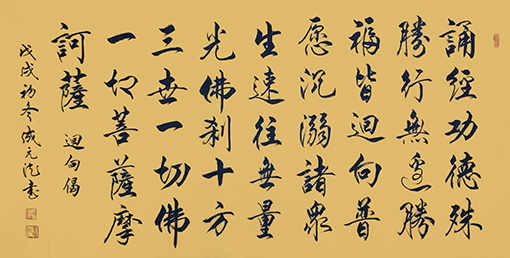 誦經功德殊
勝行無邊勝
福皆迴向普
愿沉溺諸衆
生速往無量
光佛刹十方
三世一切佛
一切菩薩摩
訶薩
迴向偈
戊戌初冬成元沈書